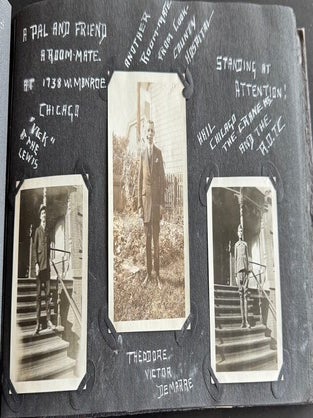 A PAL AND FRIEND
A ROOM-MATE.
AT 1738 W. MONROE
CHICAGO
"DICK"
LEWIS
ANOTHER
ROOM-MATE
FROM COOK
COUNTY
HOSPITAL.
STANDING AT
ATTENTION!
CHICAGO
THE CRANE HI.
AND THE
R.O.T.C
THEODORE
VICTOR
DEMARRE